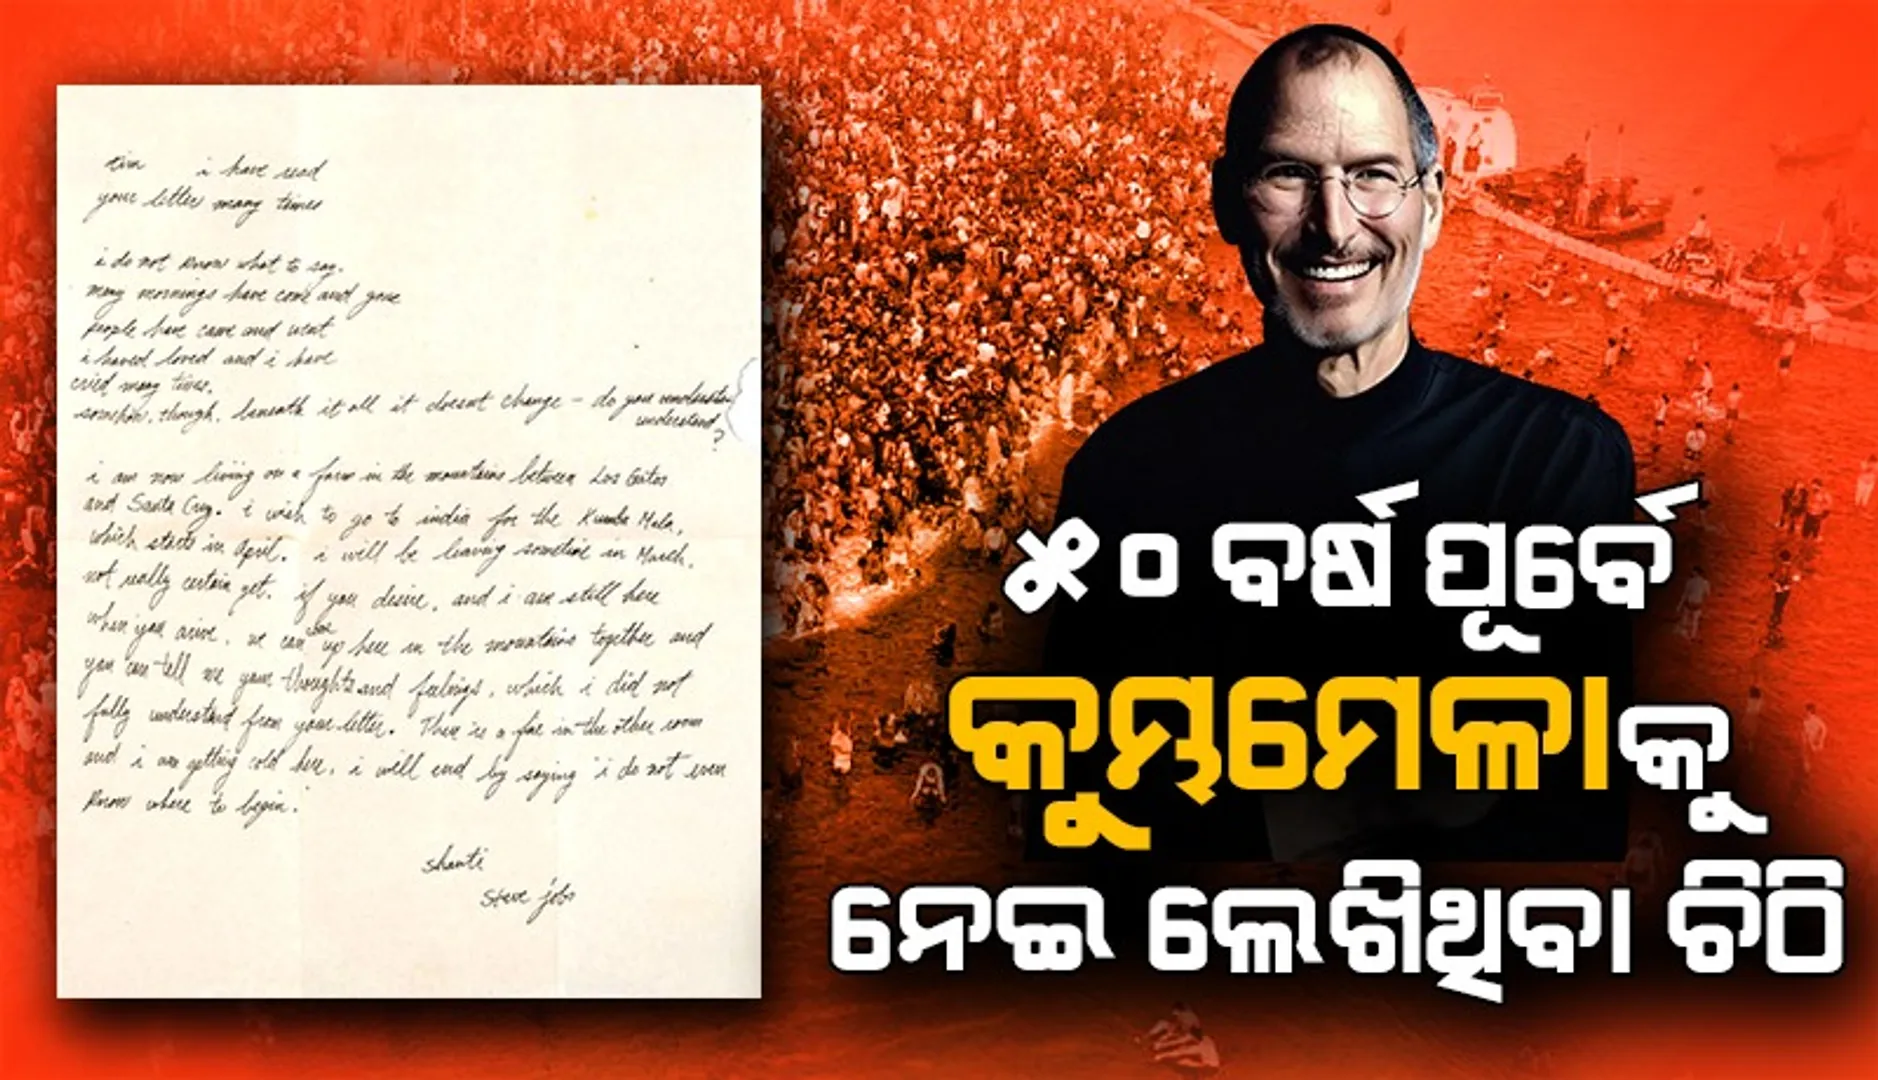 tim i have read
your letter many times
i do not know what to say.
many mornings have come and gone
people have came and went
i haved loved and i have
cried many times.
somehow, though, beneath it all it doesnt change - do you understand
understand
?
i am now living on a farm in the mountains between Los Gatos
and Santa Cruz. i wish to go to india for the Kumba Mela,
which starts in April. i will be leaving sometime in March,
not really certain yet. if you desire, and i am still here
when you arive, we can up here in the mountains together and
you can tell me your thoughts and feelings, which i did not
fully understand from your letter. There is a fire in the other room
and i am getting cold here. i will end by saying "i do not even
know where to begin."
shanti
steve jobs
୫୦ ବର୍ଷ ପୂର୍ବେ
କୁମ୍ଭମେଳାକୁ
ନେଇ ଲେଖିଥିବା ଚିଠି